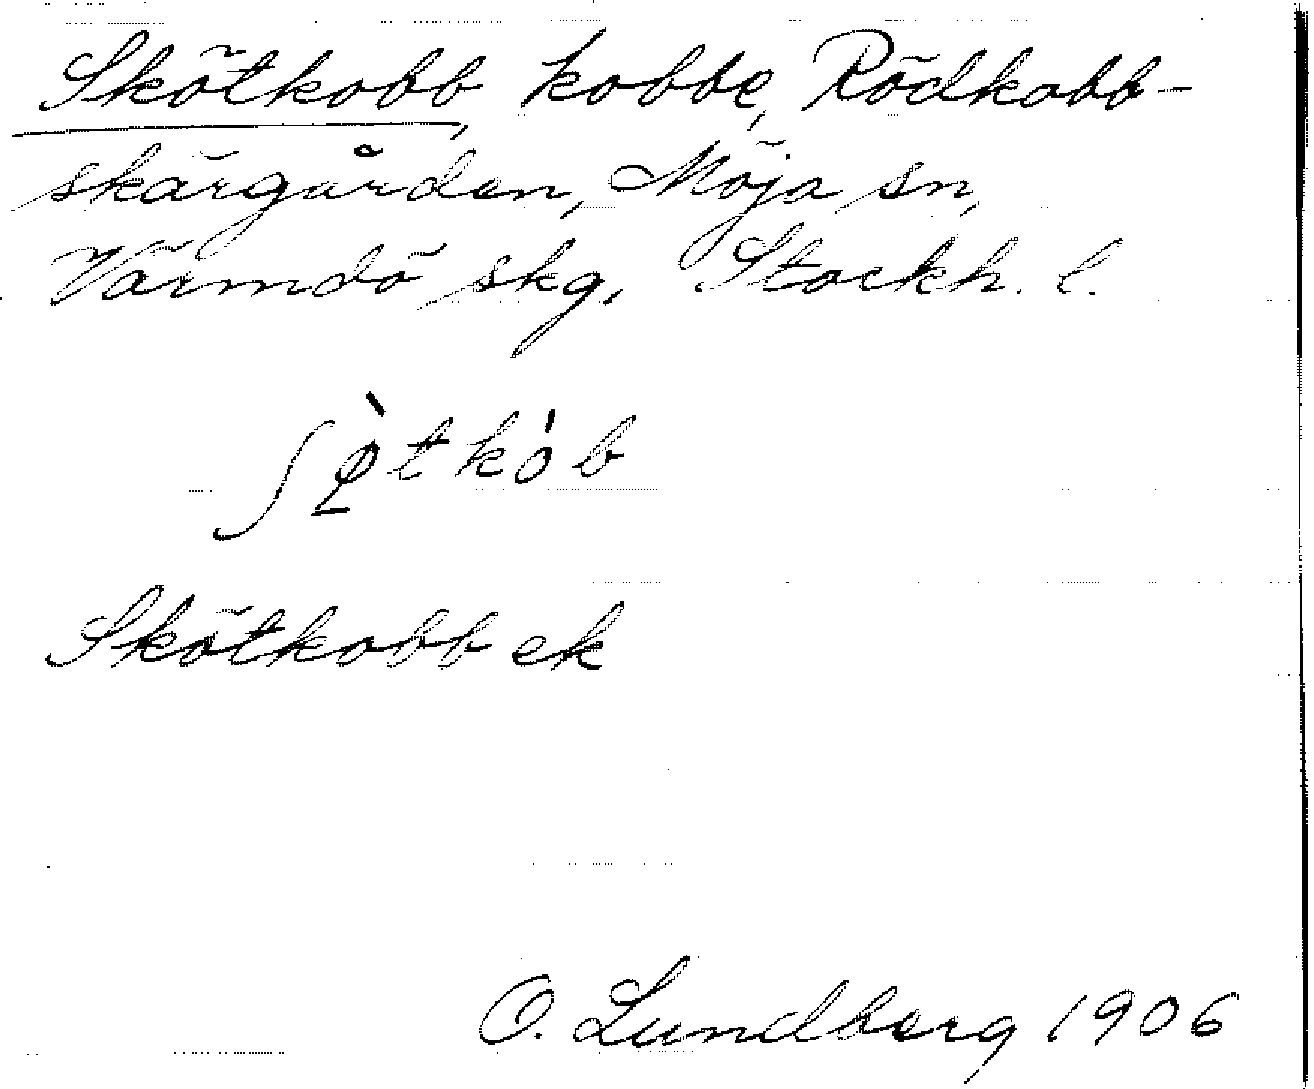 Skötkobb, kobbe, Rödkobb-
skärgården, Möja sn,
Värmdö skg, Stockh. l.
ʃø̠̀tkób
Skötkobb ek
O. Lundberg 1906